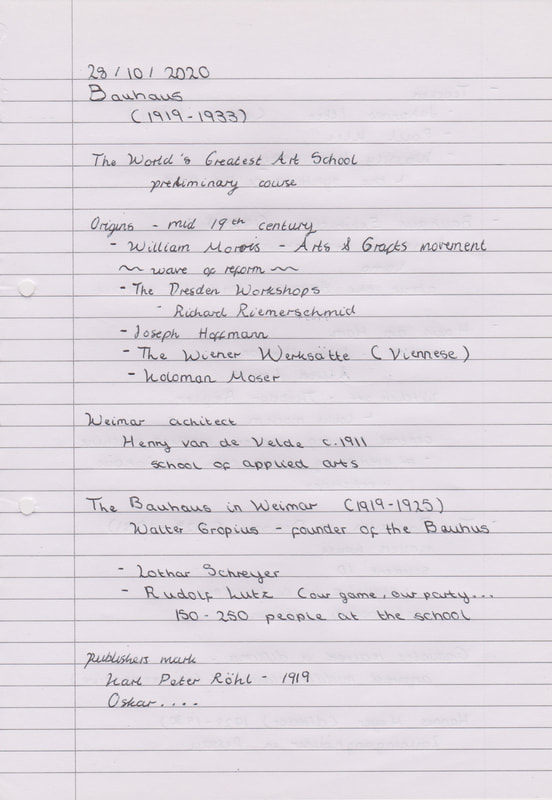 28/10/2020
Bauhaus
(1919-1933)
The World's Greatest Art School
preliminary course
Origins - mid 19th century
- William Morris - Arts & Crafts movement
~ wave of reform ~
- The Dresden Workshops
- Richard Riemerschmid
- Joseph Hoffmann
- The Wiener Werksätte (Viennese)
- Koloman Moser
Weimar achitect
Henry van de Velde c.1911
school of applied arts
The Bauhaus in Weimar (1919-1925)
Walter Gropius - founder of the Bauhus
- Lothar Schreyer
- Rudolf Lutz (our game, our party...
150-250 people at the school
publishers mark
Karl Peter Röhl - 1919
Oskar....